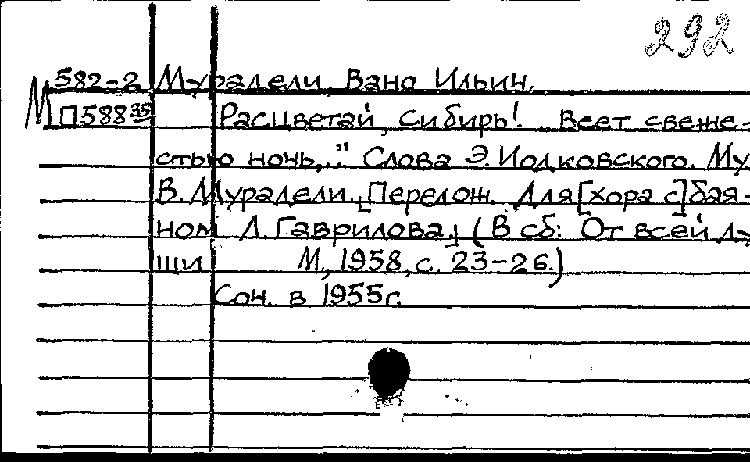 292
582-2 Мурадели, Вано Ильич.
М П588 35 Расцветай, Сибирь! „Веет свеже-
стью ночь..." Слова Э. Иодковского. Му
В. Мурадели. [Перелож. для [хора с] бая-
ном Л. Гаврилова.] (В сб: От всей ду
ши М, 1958, с. 23-26.)
Соч. в 1955г.